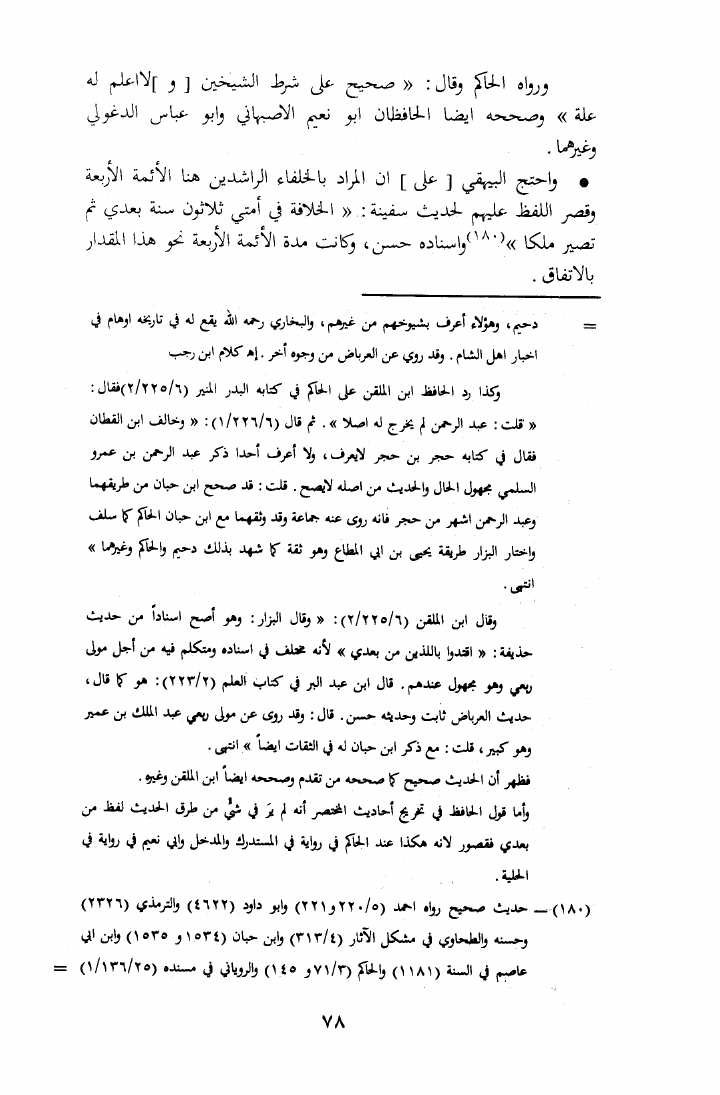 ورواه الحاكم وقال : « صحيح على شرط الشيخين [ و ]لااعلم له
علة » وصححه ايضا الحافظان ابو نعيم الاصبهاني وابو عباس الدغولي
وغيرهما .
• واحتج البيهقي [ على ] ان المراد بالخلفاء الراشدين هنا الأئمة الأربعة
وقصر اللفظ عليهم لحديث سفينة : « الخلافة في أمتي ثلاثون سنة بعدي ثم
تصير ملكا »(١٨٠)واسناده حسن ، وكانت مدة الأئمة الأربعة نحو هذا المقدار
بالاتفاق .
= دحيم ، وهؤلاء أعرف بشيوخهم من غيرهم ، والبخاري رحمه الله يقع له في تاريخه اوهام في
اخبار اهل الشام . وقد روي عن العرباض من وجوه أخر . إهـ كلام ابن رجب
وكذا رد الحافظ ابن الملقن على الحاكم في كتابه البدر المنير (٢/٢٢٥/٦)فقال :
« قلت : عبد الرحمن لم يخرج له اصلا » . ثم قال (١/٢٢٦/٦) : « وخالف ابن القطان
فقال في كتابه حجر بن حجر لايعرف ، ولا أعرف أحدا ذكر عبد الرحمن بن عمرو
السلمي مجهول الحال والحديث من اصله لايصح . قلت : قد صحح ابن حبان من طريقهما
وعبد الرحمن اشهر من حجر فانه روى عنه جماعة وقد وثقهما مع ابن حبان الحاكم كما سلف
واختار البزار طريقة يحيى بن ابي المطاع وهو ثقة كما شهد بذلك دحيم والحاكم وغيرهما »
انتهى .
وقال ابن الملقن (٢/٢٢٥/٦) : « وقال البزار : وهو أصح اسناداً من حديث
حذيفة : « اقتدوا باللذين من بعدي » لأنه مختلف في اسناده ومتكلم فيه من أجل مولى
ربعي وهو مجهول عندهم . قال ابن عبد البر في كتاب العلم (٢٢٣/٢) : هو كما قال ،
حديث العرباض ثابت وحديثه حسن . قال : وقد روى عن مولى ربعي عبد الملك بن عمير
وهو كبير ، قلت : مع ذكر ابن حبان له في الثقات ايضاً » انتهى .
فظهر أن الحديث صحيح كما صححه من تقدم وصححه ايضاً ابن الملقن وغيره .
وأما قول الحافظ في تخريج أحاديث المختصر أنه لم يرَ في شيٍّ من طرق الحديث لفظ من
بعدي فقصور لانه هكذا عند الحاكم في رواية في المستدرك والمدخل وابي نعيم في رواية في
الحلية .
(١٨٠) ــ حديث صحيح رواه احمد (٢٢٠/٥ و٢٢١) وابو داود (٤٦٢٢) والترمذي (٢٣٢٦)
وحسنه والطحاوي في مشكل الآثار (٣١٣/٤) وابن حبان (١٥٣٤ و ١٥٣٥) وابن ابي
عاصم في السنة (١١٨١) والحاكم (٧١/٣ و ١٤٥) والروياني في مسنده (١/١٣٦/٢٥) =
٧٨